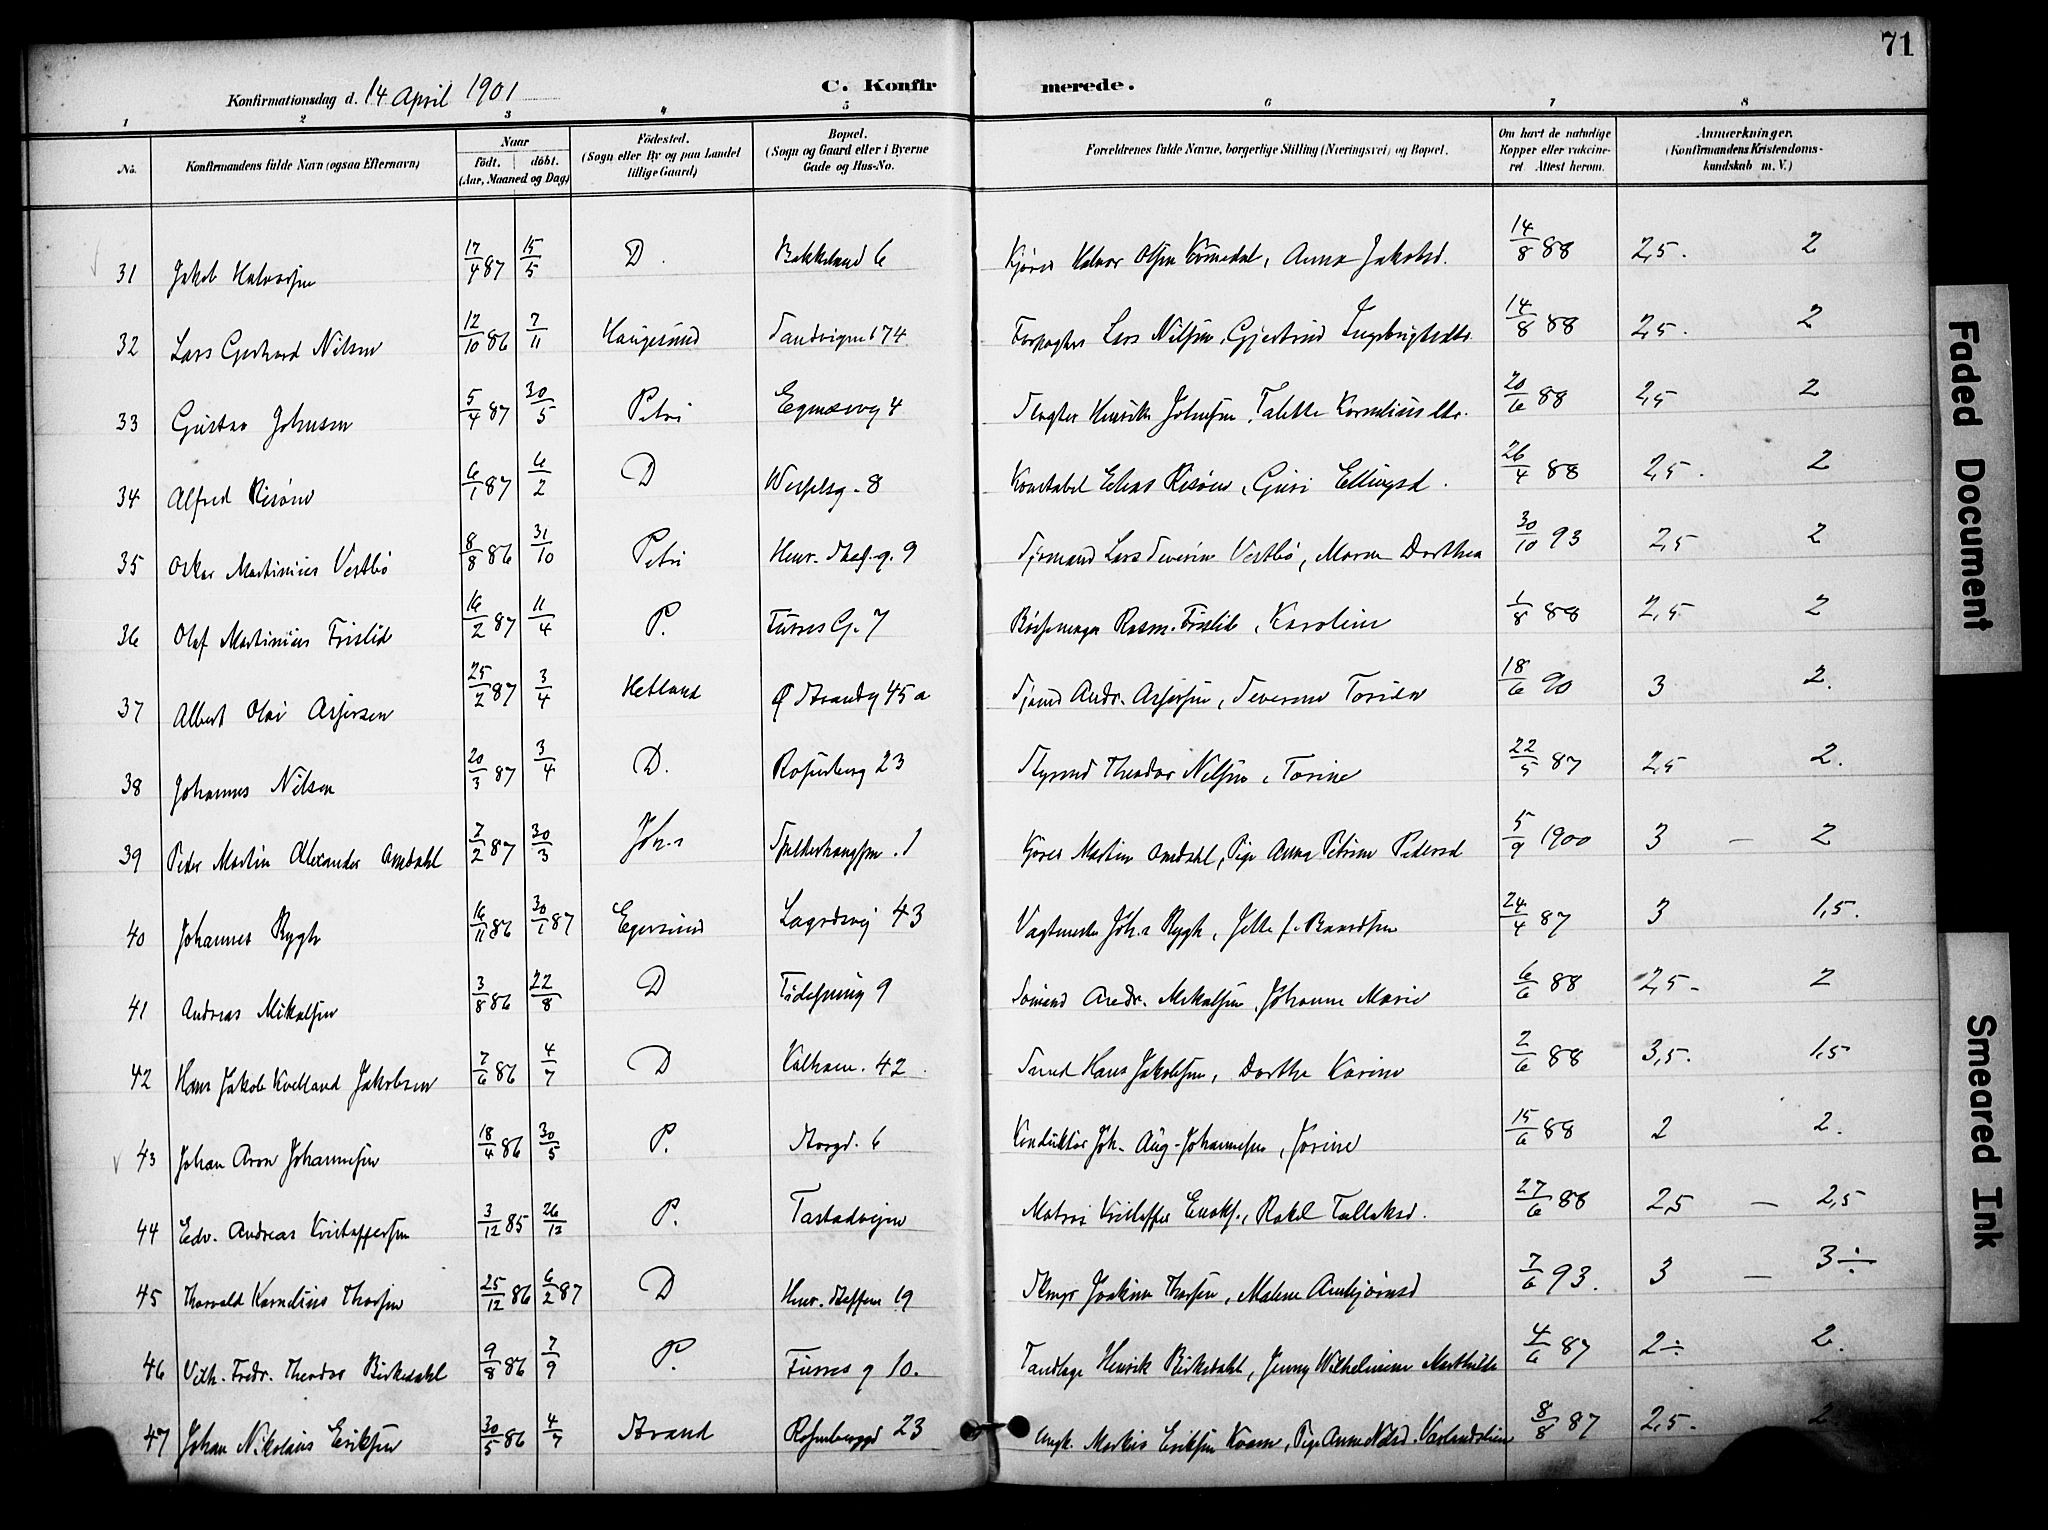 71
Konfirmationsdag d. 14 April 1901
C. Konfirmerede.
1 2 3 4 5 6 7 8
No. Konfirmandens fulde Navn (ogsaa Efternavn) Naar født. døbt. (Aar, Maaned og Dag) Födested. (Sogn eller By og paa Landet tillige Gaard) Bopæl. (Sogn og Gaard eller i Byerne Gade og Hus-No. Forældrenes fulde Navne, borgerlige Stilling (Næringsvei) og Bopæl. Om havt de naturlige Kopper eller vakcineret Attest herom. Anmærkninger. (Konfirmandens Kristendomskundskab m. V.)
31 Jakob Halvorsen 17/4 87 15/5 D. Bakkeland 6 Kjører Halvor Olsen, Anna Jakobsd. 14/8 88 2,5. 2
32 Lars Gerhard Nilsen 12/10 86 7/11 Haugesund Sandvigen 174 Forpagter Lars Nilsen, Gjertrud Ingebrigtsdtr. 14/8 88 2,5. 2
33 Gustav Johnsen 5/4 87 30/5 Petri Egnæsvg 4 Slagter Henrik Johnsen, Talette Korneliusdtr. 20/6 88 2,5 2
34 Alfred Risøen 6/1 87 6/2 D Wesselsg. 8 Konstabel Elias Risøen, Guri Ellingsd. 26/4 88 2,5. 2
35 Oskar Martinius Vestbö 8/8 86 31/10 Petri Henr. Stef. g. 9 Sjømand Lars Severin Vestbö, Maren Dorthea 30/10 93 2,5 2
36 Olaf Martinius Frislid 16/2 87 11/4 P. Furres G. 7 Bøssemager Rasm. Frislid, Karoline 1/8 88 2,5. 2
37 Albert Olai Asjersen 25/2 87 3/4 Hetland Ø Strandg 45 a Sjømd Andr. Asjersen, Severine 18/6 90 3 2.
38 Johannes Nilsen 20/3 87 3/4 D. Rosenberg 23 Styrmd Theodor Nilsen, Torine 22/5 87 2,5 2.
39 Peder Martin Alexander Omdahl 7/2 87 30/3 Joh.s 1 Kjører Martin Omdahl, Pige Anna Petrine Pedersd 5/9 1900 3 — 2
40 Johannes Rygh 16/11 86 30/1 87 Egersund Lagårdsvej 43 Vagtmester Joh.s Rygh, Jette f. Baardsen 24/4 87 3 1,5.
41 Andreas Mikalsen 3/8 86 22/8 D 9 Sømand Andr. Mikalsen, Johanne Marie 6/6 88 2,5- 2
42 Hans Jakob Kvelland Jakobsen 7/6 86 4/7 D Kalham. 42 Smed Hans Jakobsen, Dorthe Karine 2/6 88 3,5. 1,5
43 Johan Aron Johannesen 18/4 86 30/5 P. Storgd. 6 Konduktør Joh. Aug. Johannesen, Jorine 15/6 88 2 2.
44 Edv. Andreas Kristoffersen 3/12 85 26/12 P. Tastadveien Matros Kristoffer Enoks., Rakel Tallaksd. 27/6 88 2,5 — 2,5
45 Thorvald Kornelius Thorsen 25/12 86 6/2 87 D Henr. Steffens 19 Joakim Thorsen, Malene Arnbjørnsd 7/6 93. 3 — 3÷
46 Vilh. Fredr. Theodor Birkedahl 9/8 86 7/9 P. Furres g 10. Tandlæge Henrik Birkedahl, Jenny Wilhelmine Mathilde 4/6 87 2÷ 2.
47 Johan Nikolaus Eriksen 30/5 86 4/7 Strand Rosenberggd 23 Ungk. Markus Eriksen Kvam, Pige Anne Nilsd. 8/8 87 2,5. 2
Faded Document
Smeared Ink